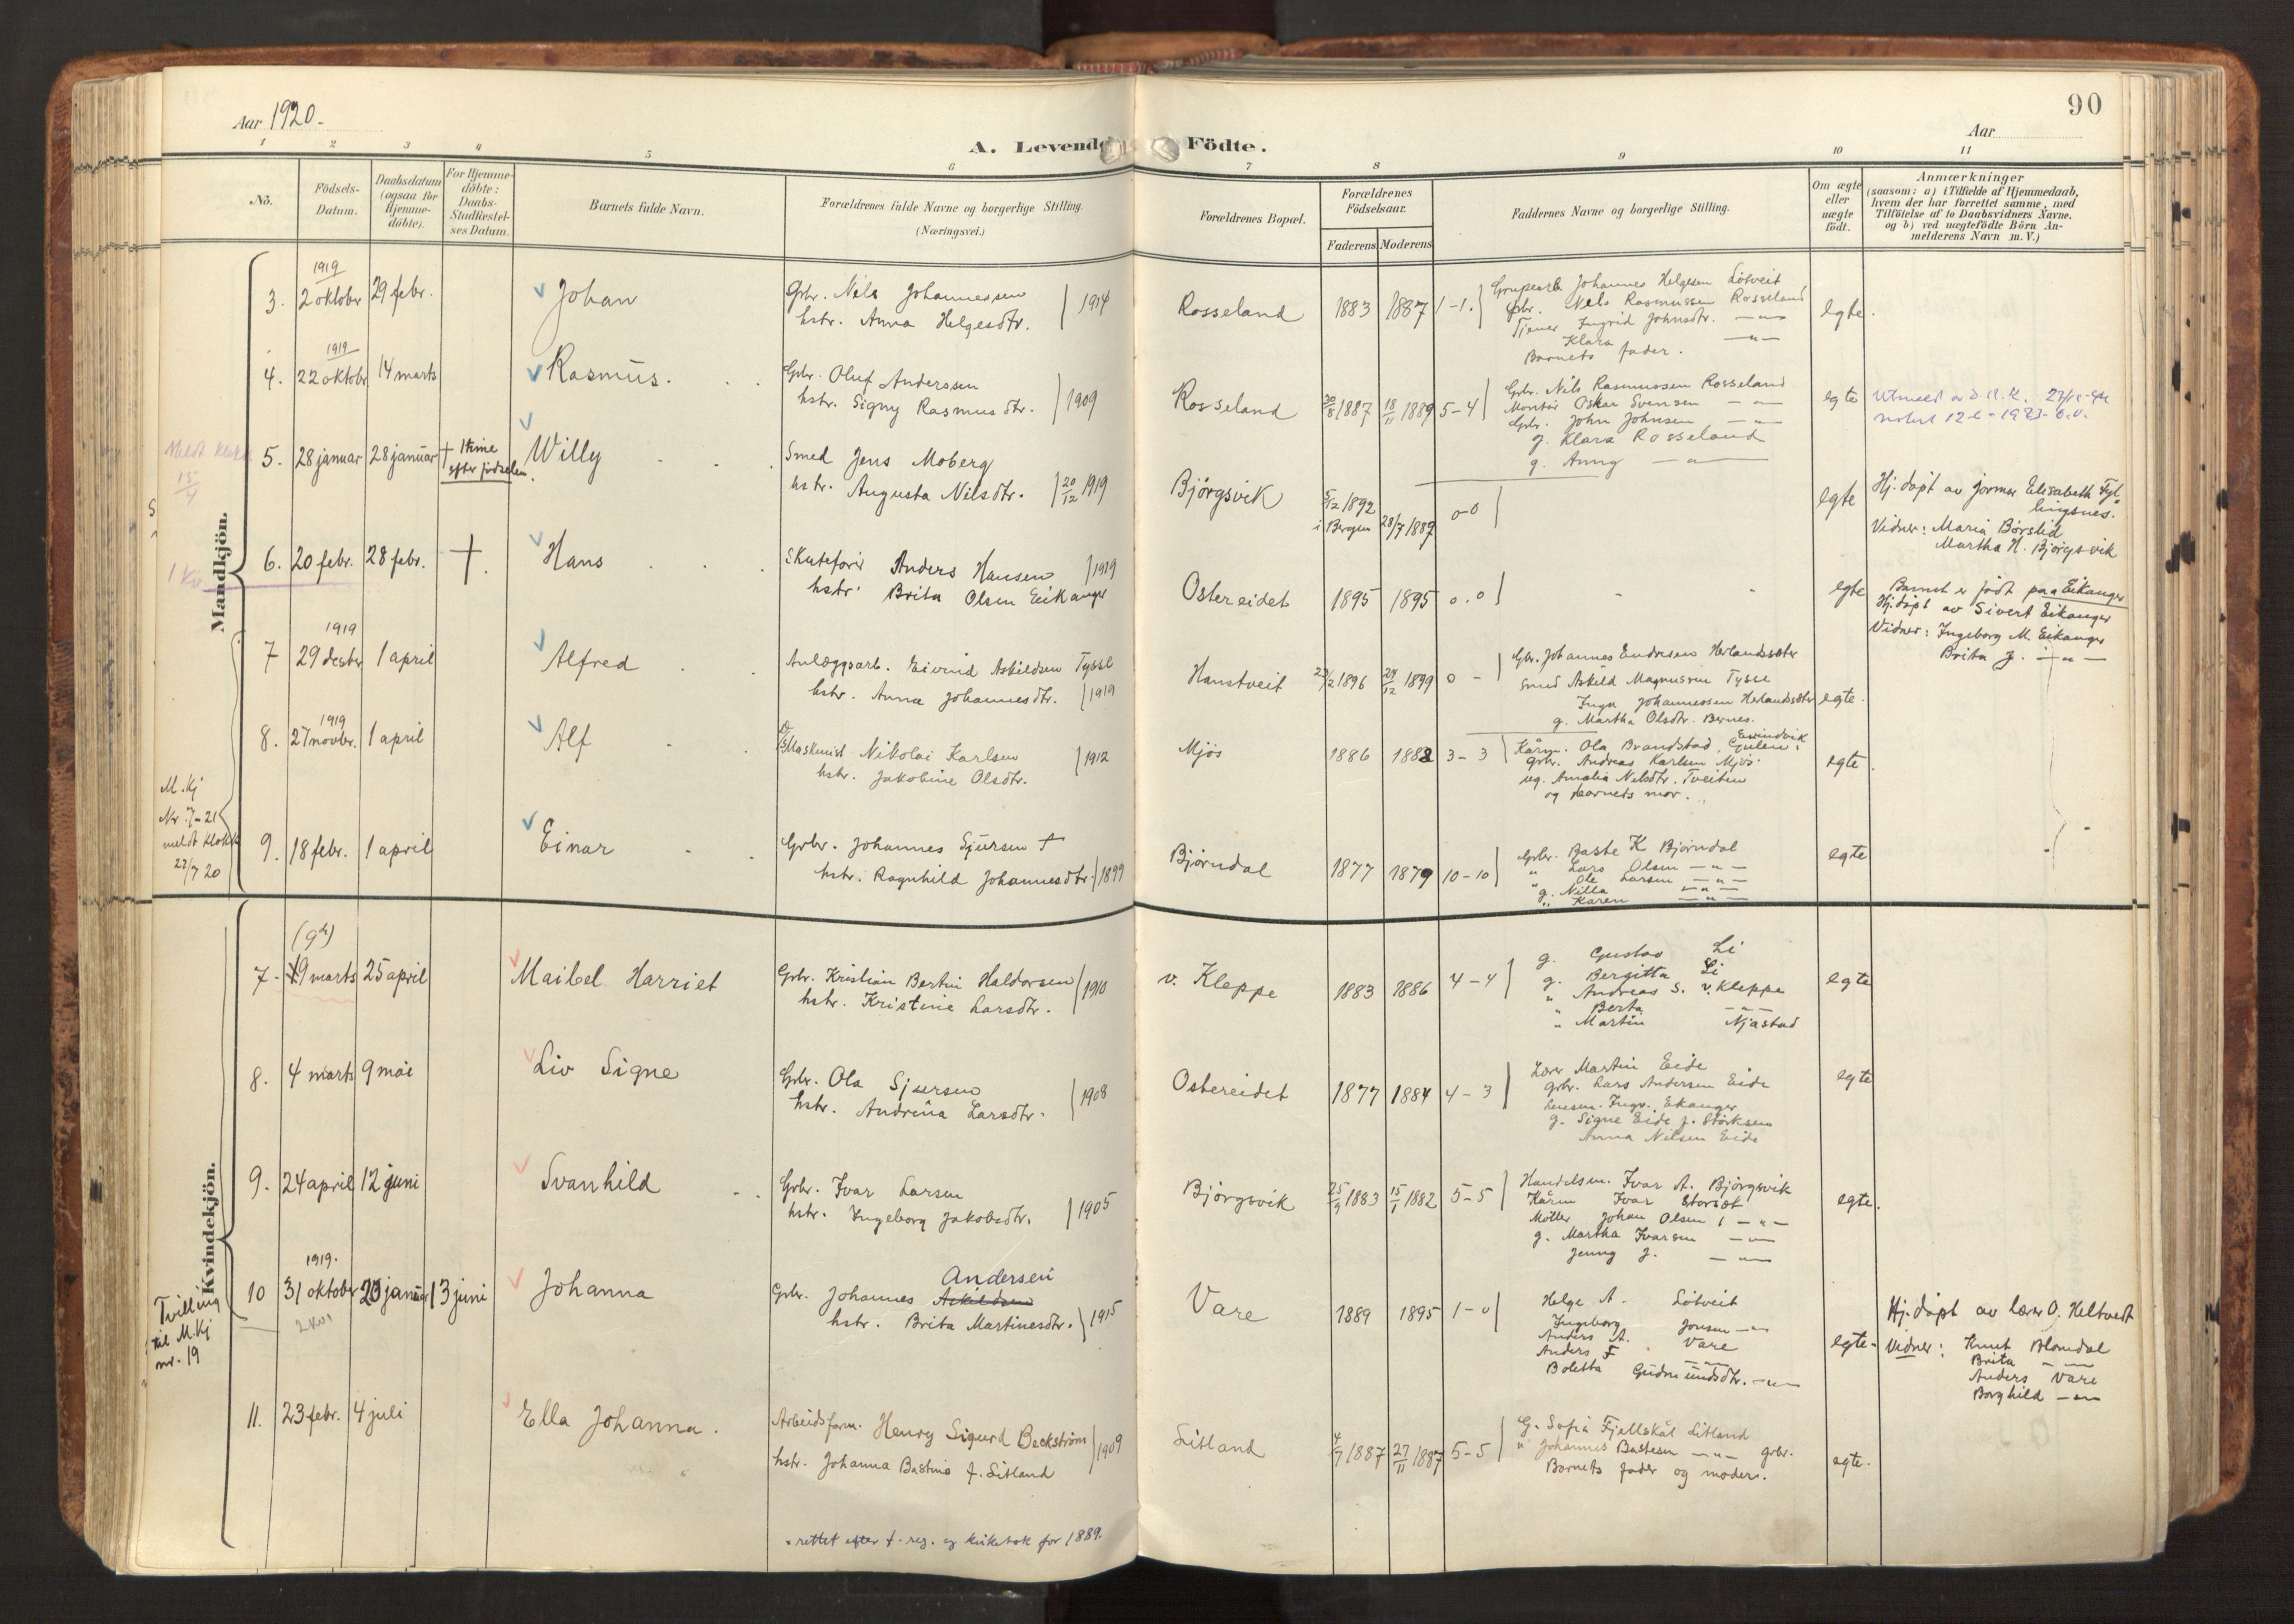 90
Aar 1920.
Aar
A. Levende Födte.
1 2 3 4 5 6 7 8 9 10 11
No.
Födsels-Datum.
Daabsdatum (ogsaa för Hjemme-döbte).
For Hjemme-döbte: Daabs-Stadfæstel-ses Datum.
Barnets fulde Navn.
Forældrenes fulde Navne og borgerlige Stilling. (Næringsvei.)
Forældrenes Bopæl.
Forældrenes Födselsaar.
Faderens Moderens
Faddernes Navne og borgerlige Stilling.
Om ægte eller uægte födt.
Anmærkninger
(saasom: a) i Tilfælde af Hjemmedaab, hvem der har forrettet samme, med Tilföielse af to Daabsvidners Navne, og b) ved uægtefödte Börn Anmelderens Navn m.V.)
Mandkjön.
1919
3. 2 oktober 29 febr. Johan
Gbr. Nils Johannessen
hstr. Anna Helgesdtr. 1914
Rosseland 1883 1887 1-1.
Johannes Helgesen Lötveit
Gbr. Nils Rasmussen Rosseland
Tjener Ingrid Johnsdtr. — " —
Klara — " —
Barnets fader.
egte.
1919
4. 22 oktobr 14 marts Rasmus.
Gbr. Oluf Anderssen
hstr. Signy Rasmusdtr. 1909
Rosseland 30/8 1887 18/11 1889 5-4
Gbr. Nils Rasmussen Rosseland
Montör Oskar Svensen — " —
Gbr. John Johnsen — " —
g. Klara Rosseland
g. Anny — " —
egte
5. 28 januar 28 januar + 1 time efter födselen. Willy
Smed Jens Moberg
hstr. Augusta Nilsdtr. 20/12 1919
Björgsvik 5/12 1892 i Bergen 28/7 1889 0-0
egte
Hj. döpt av jormor Elisabeth Fyllingsnes.
Vidner: Maria Børslid
Martha H. Björgsvik
15/4
6. 20 febr. 28 febr. +. Hans
Skutefører Anders Hansen 1919
hstr. Brita Olsen Eikanger
Ostereidet 1895 1895 0.0
egte
Barnet er født paa Eikanger
Hj. döpt av Sivert Eikanger
Vidner: Ingeborg M. Eikanger
Brita J. — " —
1919
7 29 desbr 1 april Alfred
Anlægsarb. Eivind Askildsen Tysse
hstr. Anna Johannesdtr. 1919
Hanstveit 23/2 1896 24/12 1899 0 -
Gbr. Johannes Endresen Herlandsæter
Smed Askild Magnussen Tysse
Inga Johannessen Herlandsæter
g. Martha Olsdtr. Bernes.
egte.
1919
8. 27 novbr. 1 april Alf
Maskinist Nikolai Karlsen
hstr. Jakobine Olsdtr. 1912
Mjøs 1886 1882 3-3
Kårm. Ola Brandstad, Eivindvik Gulen.
gbr. Andreas Karlsen Mjøs
ug. Amalia Nilsdtr. Tveiten
og barnets mor.
egte
M. Kj
Nr. 7-21
meldt klokk
22/7 20
9. 18 febr. 1 april Einar
Gbr. Johannes Sjursen +
hstr. Ragnhild Johannesdtr. 1899
Bjørndal 1877 1879 10-10
Gbr. Baste K Bjørndal
" Lars Olsen — " —
" Ole Larsen — " —
g. Nilla — " —
" Karen — " —
egte
Kvindekjön.
(9de)
7. 19 marts 25 april Maibel Harriet
Gbr. Kristian Bertin Haldorsen
hstr. Kristine Larsdtr. 1910
v. Kleppe 1883 1886 4-4
g. Gustav Li
g. Bergitta Li
" Andreas S. v. Kleppe
" Berta — " —
" Martin Njåstad
egte
8. 4 marts 9 mai Liv Signe
Gbr. Ola Sjursen
hstr. Andrina Larsdtr. 1908
Ostereidet 1877 1884 4-3
Lærer Martin Eide
gbr. Lars Andersen Eide
Ingv. Eikanger
g. Signe Eide f. Storksen
Anna Nilsen Eide
egte
9. 24 april 12 juni Svanhild
Gbr. Ivar Larsen
hstr. Ingeborg Jakobsdtr. 1905
Björgsvik 25/9 1883 15/1 1882 5-5
Handelsm. Ivar A. Björgsvik
Kårm Ivar Storset
Möller Johan Olsen — " —
g. Martha Ivarsen — " —
Jenny J. — " —
egte.
1919.
10 31 oktober 20 januar 13 juni Johanna
Andersen
Gbr. Johannes Askildsen
hstr. Brita Martinesdtr. 1915
Vare 1889 1895 1-0
Helge A. Lötveit
Ingeborg Jonsen — " —
Anders A. Vare
Anders F — " —
Boletta Gudmundsdtr. — " —
egte.
Hj. döpt av lærer O. Heltvedt
Vidner: Knut Blomdal
Brita — " —
Anders Vare
Borghild — " —
Tvilling
til M. Kj
nr. 19
11. 23 febr. 4 juli Ella Johanna.
Arbeidsform. Henry Sigurd Beckström
hstr. Johanna Bastine f. Litland 1909
Litland 4/7 1887 27/11 1887 5-5
G. Sofia Fjellskål Litland
" Johannes Bastesen — " — gbr.
Barnets fader og moder.
egte.
rettet efter f. reg. og kirkebok for 1889.